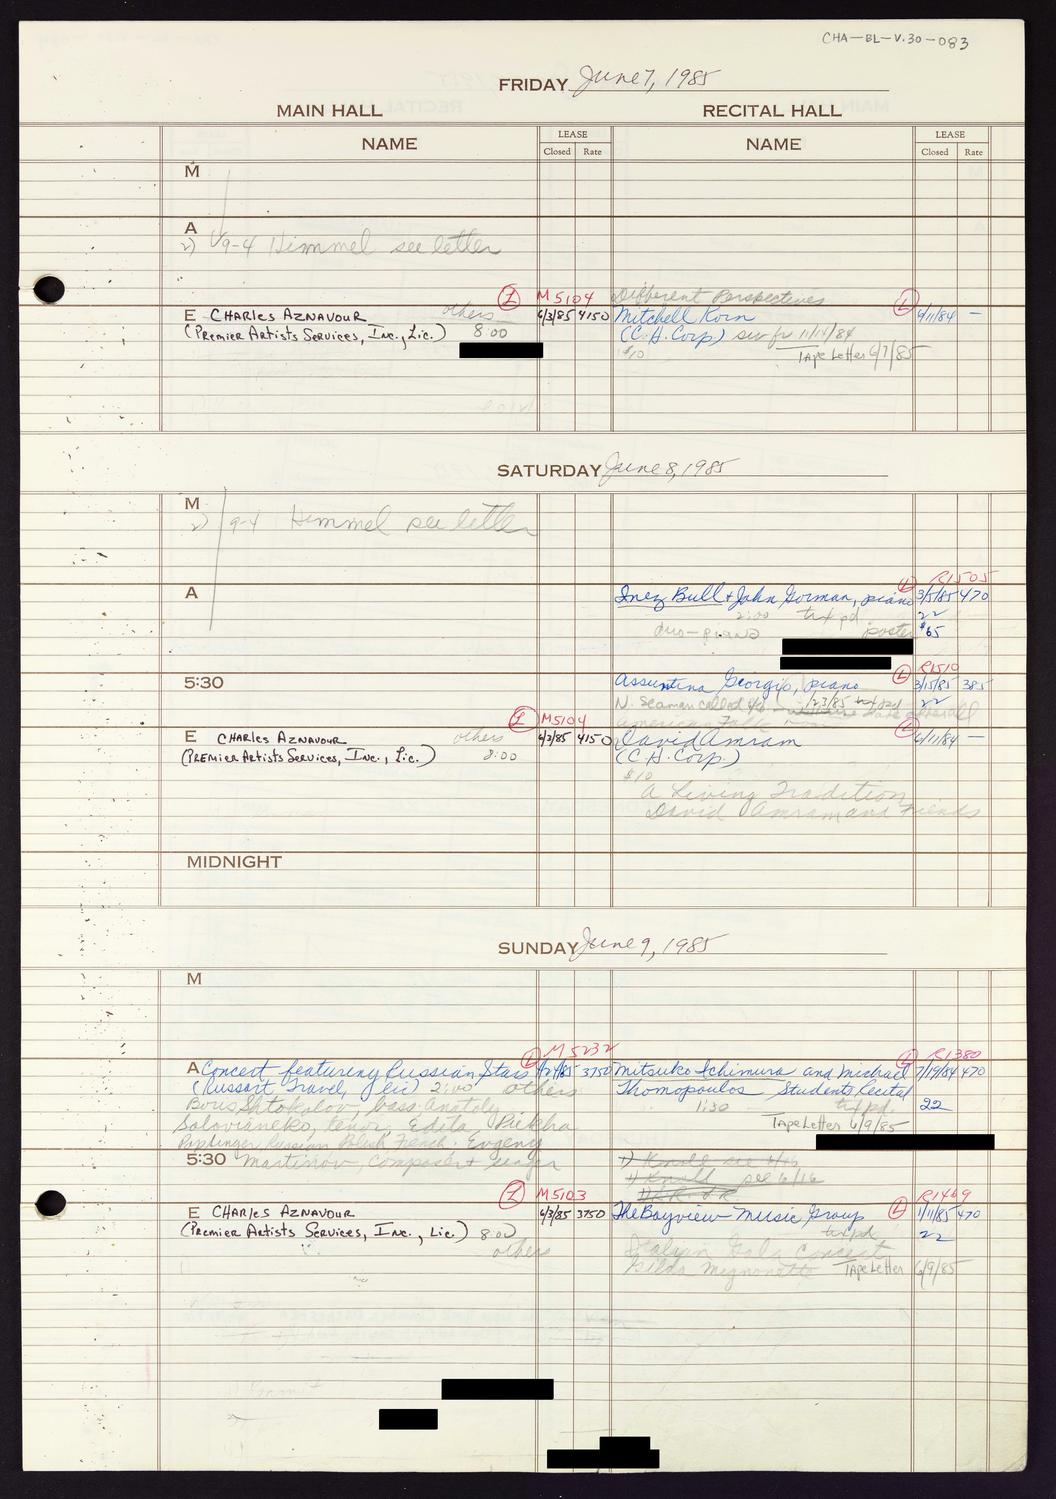 CHA-BL-V.30-083
FRIDAY June 7, 1985
MAIN HALL RECITAL HALL
NAME LEASE Closed Rate NAME LEASE Closed Rate
M
A
2) 9-4 Himmel see letter
L M5104 Different Perspectives L
E CHARLES AZNAVOUR others 6/3/85 4150 Mitchell Korn 6/11/84 —
(PREMIER ARTISTS SERVICES, INC., LIC.) 8:00 (C.H. Corp.) 11/14/84
$10 TAPE LETTER 6/7/85
SATURDAY June 8, 1985
M
2) 9-4 Himmel see letter
L R1505
A Inez Bull + John Gorman, piano 3/5/85 470
2:00 txt pd 22
duo-piano poster $65
L R1510
5:30 Assuntina Georgis, piano 3/15/85 385
N. Seaman called 22
L M5104 American L
E CHARLES AZNAVOUR others 6/3/85 4150 David Amram 6/11/84 —
(PREMIER ARTISTS SERVICES, INC., LIC.) 8:00 (C.H. Corp.)
$10
A Living Tradition
David Amram and Friends
MIDNIGHT
SUNDAY June 9, 1985
M
L M5232 L R1380
A Concert featuring Russian Stars 3750 Mitsuko Ichimura and Michael 7/19/84 470
(Russart Travel, Lic) 2:00 others Thomopoulos Students Recital
Boris Shtokolov, bass Anatoly 1:30 txt pd. 22
Solovianenko, tenor, Edita Piekha TAPE LETTER 6/9/85
Pop Singer Russian Polish French. Evgeny
5:30 Martinov, Composer + singer 1) Knoll see 6/16
1) Knoll see 6/16
L M5103 L R1469
E CHARLES AZNAVOUR 6/3/85 3750 The Bayview Music Group 1/11/85 470
(PREMIER ARTISTS SERVICES, INC., LIC.) 8:00 txt pd. 22
others Italian Gala Concert
Gilda Mignonette TAPE LETTER 6/9/85